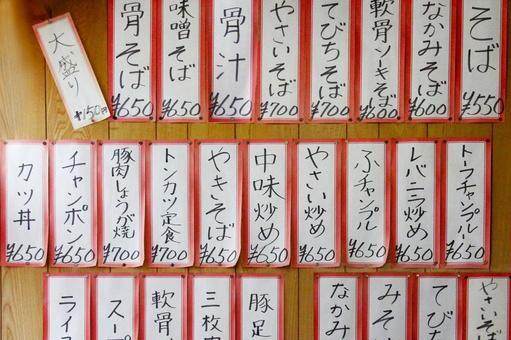 そば ¥550
なかみそば ¥600
軟骨ソーキそば ¥600
てびちそば ¥700
やさいそば ¥700
骨汁 ¥650
味噌そば ¥650
骨そば ¥650
大盛り ¥150円
トーフチャンプル ¥650
レバニラ炒め ¥650
ふチャンプル ¥650
やさい炒め ¥650
中味炒め ¥650
やきそば ¥650
トンカツ定食 ¥700
豚肉しょうが焼 ¥700
チャンポン ¥650
カツ丼 ¥650
やさいそば
てび
みそ
なかみ
豚足
三枚
軟骨
スープ
ライ